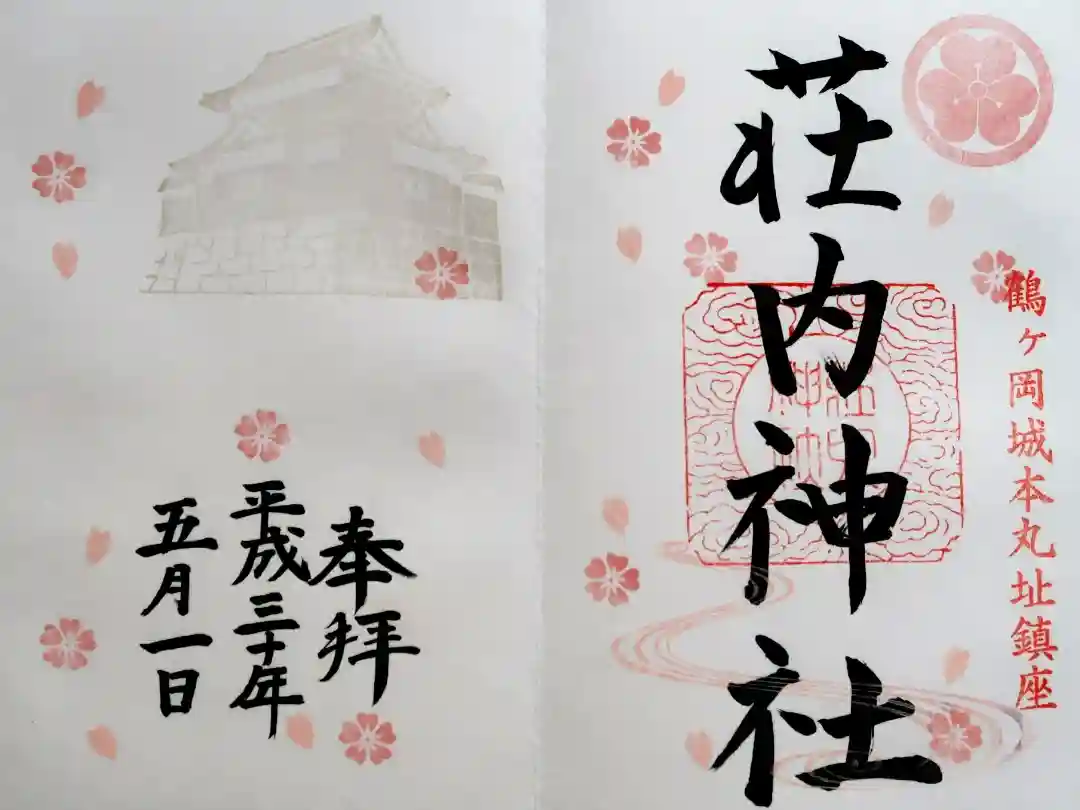 鶴ヶ岡城本丸址鎮座
荘内神社
奉拝
平成三十年
五月一日